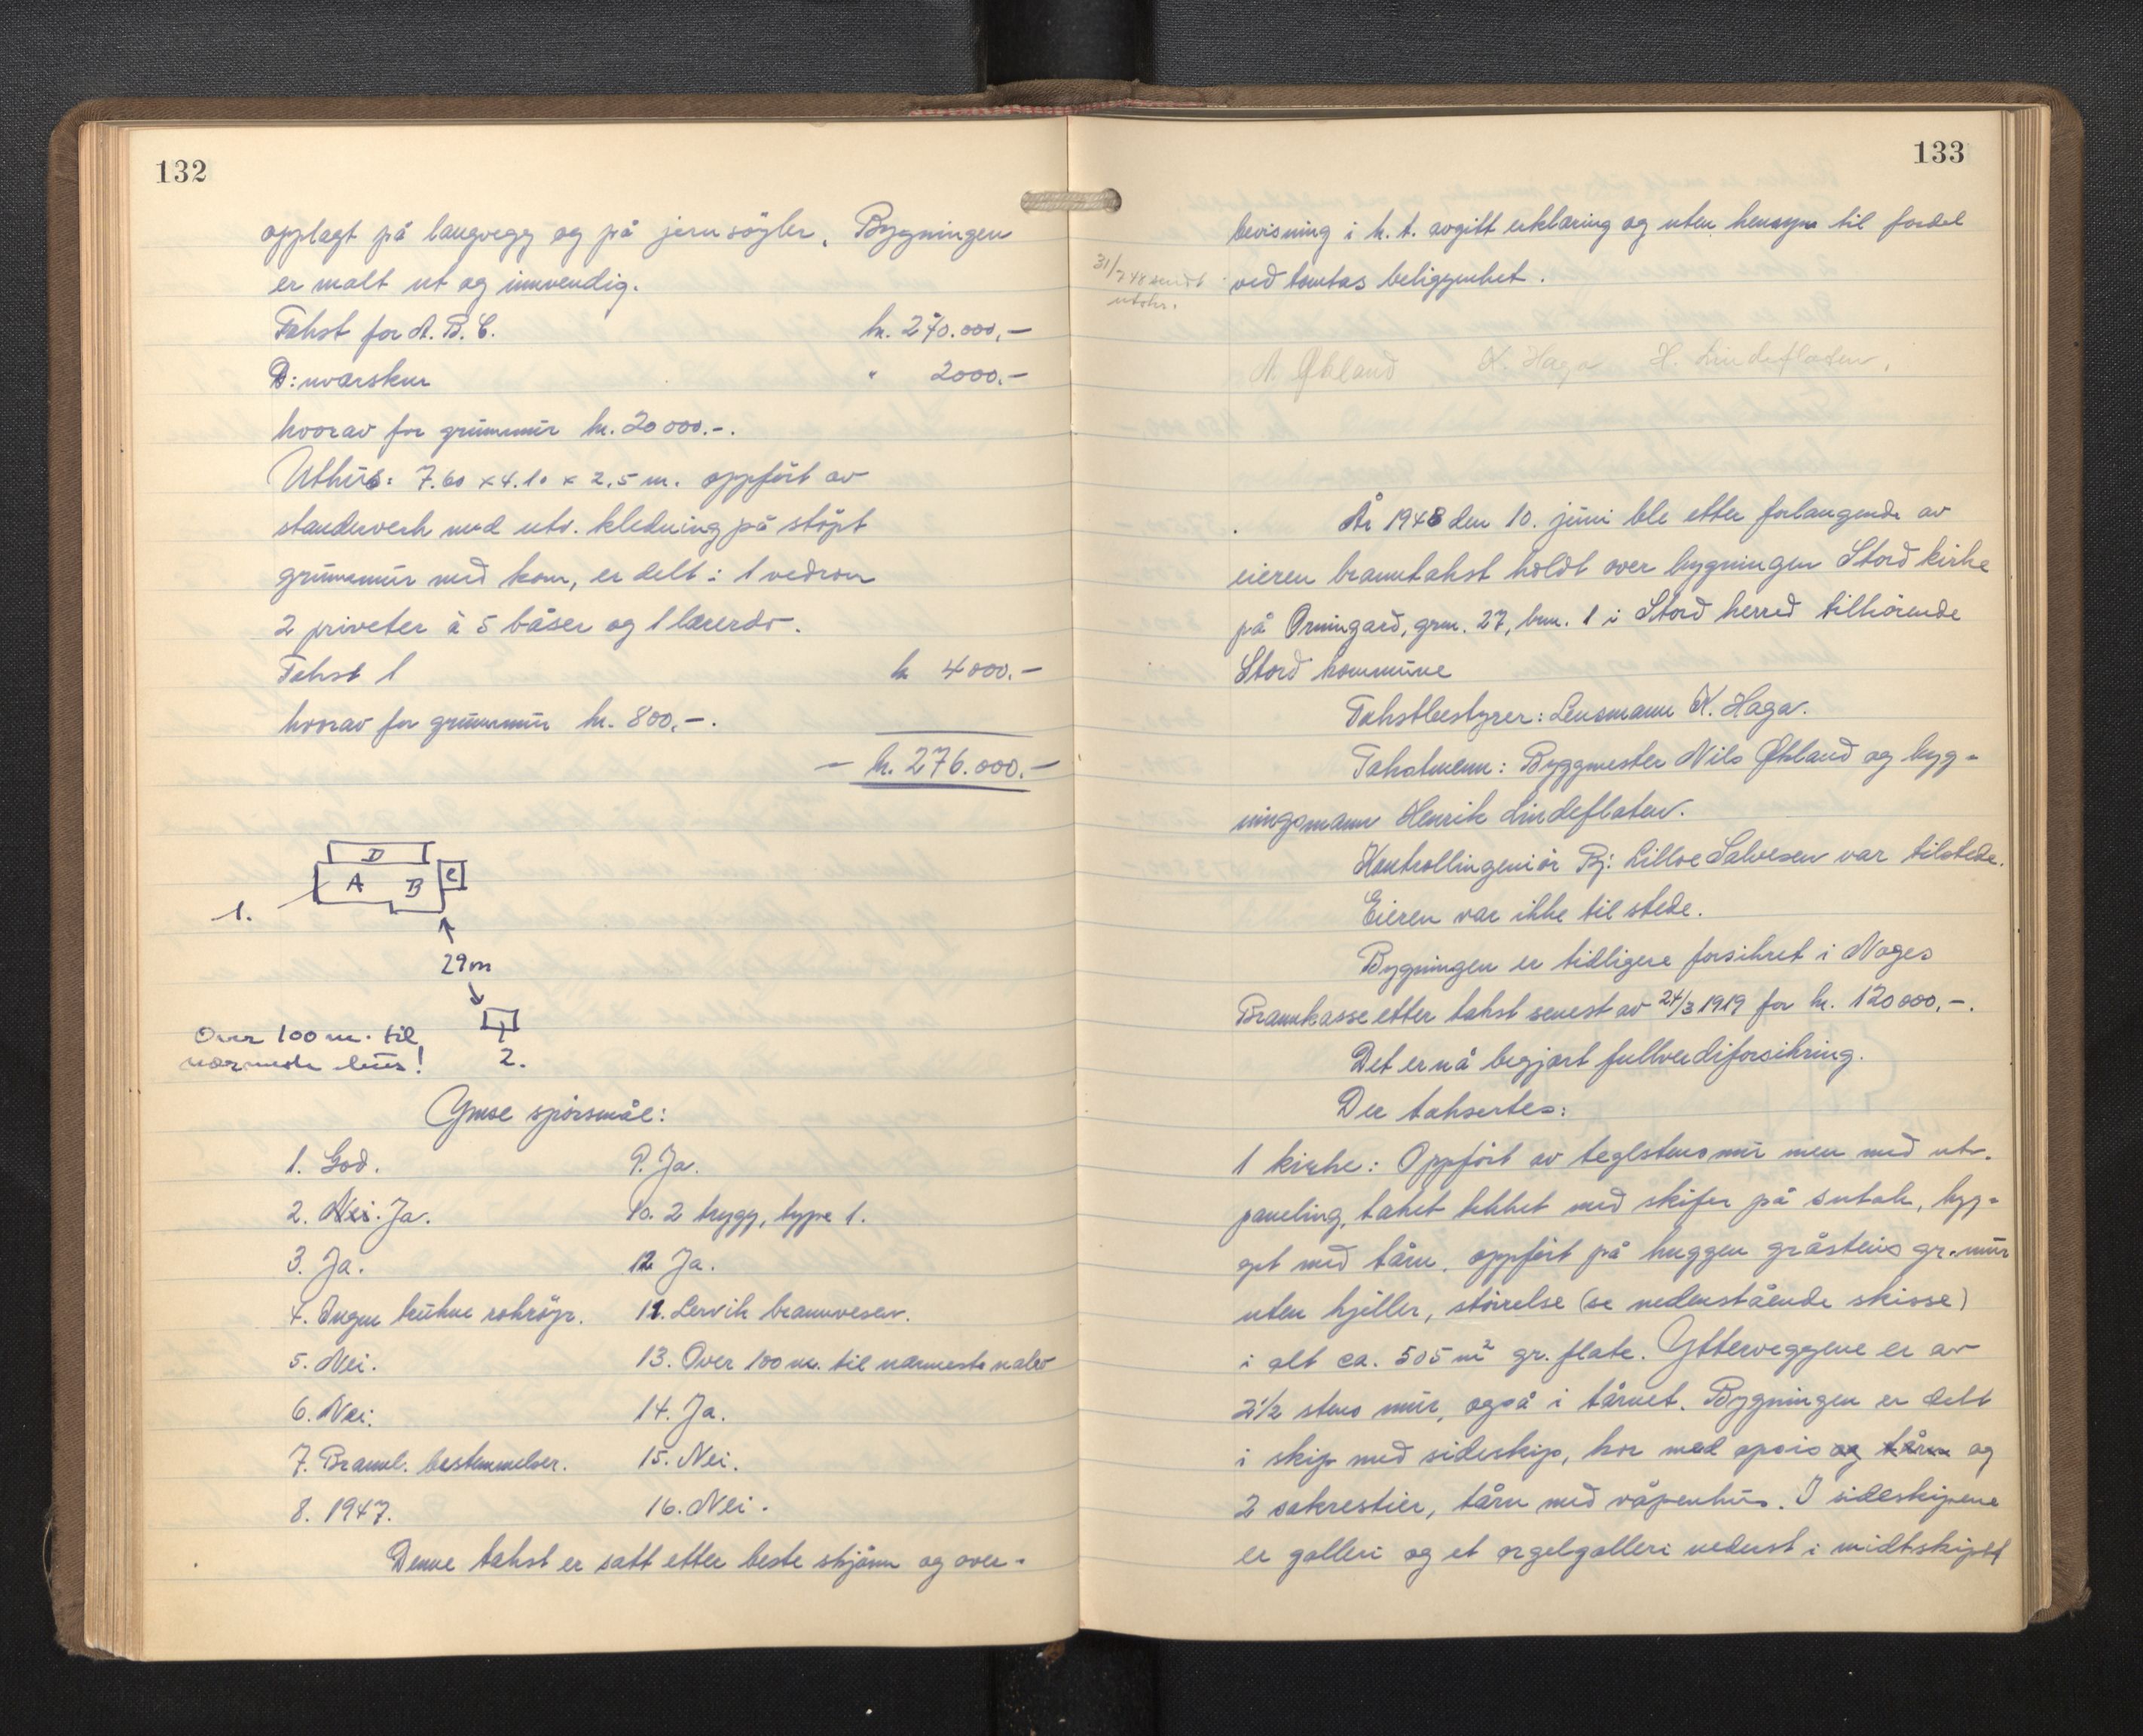 132
opplagt på langvegg og på jernsöyler. Bygningen
er malt ut og innvendig.
Takst for A. B. C. kr. 270.000,-
D: uværskur " 2000.-
hvorav for grunnmur kr. 20 000.-.
Uthus: 7.60 x 4.10 x 2.5 m. oppfört av
standerverk med utv. kledning på stöpt
grunnmur med kom, er delt i 1 vedrom
2 priveter à 5 båser og 1 lærerdo.
Takst 1 kr 4000.-
hvorav for grunnmur kr. 800,-.
- kr. 276.000.-
D
A B C
1.
29m
2.
Over 100 m. til
nærmeste hus!
Ymse spörsmål:
1. God. 9. Ja.
2. Nei. Ja. 10. 2 trygg, type 1.
3. Ja. 12 Ja.
4. Ingen brukne rökrör. 11. Lervik brannvesen.
5. Nei. 13. Over 100 m. til nærmeste nabo
6. Nei. 14. Ja.
7. Brannl. bestemmelser. 15. Nei.
8. 1947. 16. Nei.
Denne takst er satt etter beste skjönn og over-
133
bevisning i h. t. avgitt erklæring og uten hensyn til fordel
ved tomtas beliggenhet.
31/7 48 sendt
utskr.
N. Økland K. Haga H. Lindefloten.
År 1948 den 10. juni ble etter forlangende av
eieren branntakst holdt over bygningen Stord kirke
på Orningard, grnr. 27, bnr. 1 i Stord herred tilhörende
Stord kommune
Takstbestyrer: Lensmann K. Haga.
Takstmenn: Byggmester Nils Økland og byg-
ningsmann Henrik Lindefloten.
Kontrollingeniör Bj: Lilloe Salvesen var tilstede.
Eieren var ikke til stede.
Bygningen er tidligere forsikret i Noges
Brannkasse etter takst senest av 24/3 1919 for kr. 120 000,-.
Det er nå begjært fullverdiforsikring.
Der taksertes:
1 kirke: Oppfört av teglstensmur men med utv.
paneling, taket tekket med skifer på sutak, byg-
get med tårn, oppfört på huggen gråsteins gr.mur
uten kjeller, störrelse (se nedenstående skisse)
i alt ca. 505 m² gr.flate. Ytterveggene er av
2 1/2 stens mur, også i tårnet. Bygningen er delt
i skip med sideskip, kor med apsis og tårn og
2 sakrestier, tårn med våpenhus. I sideskipene
er galleri og et orgelgalleri nederst i midtskipet